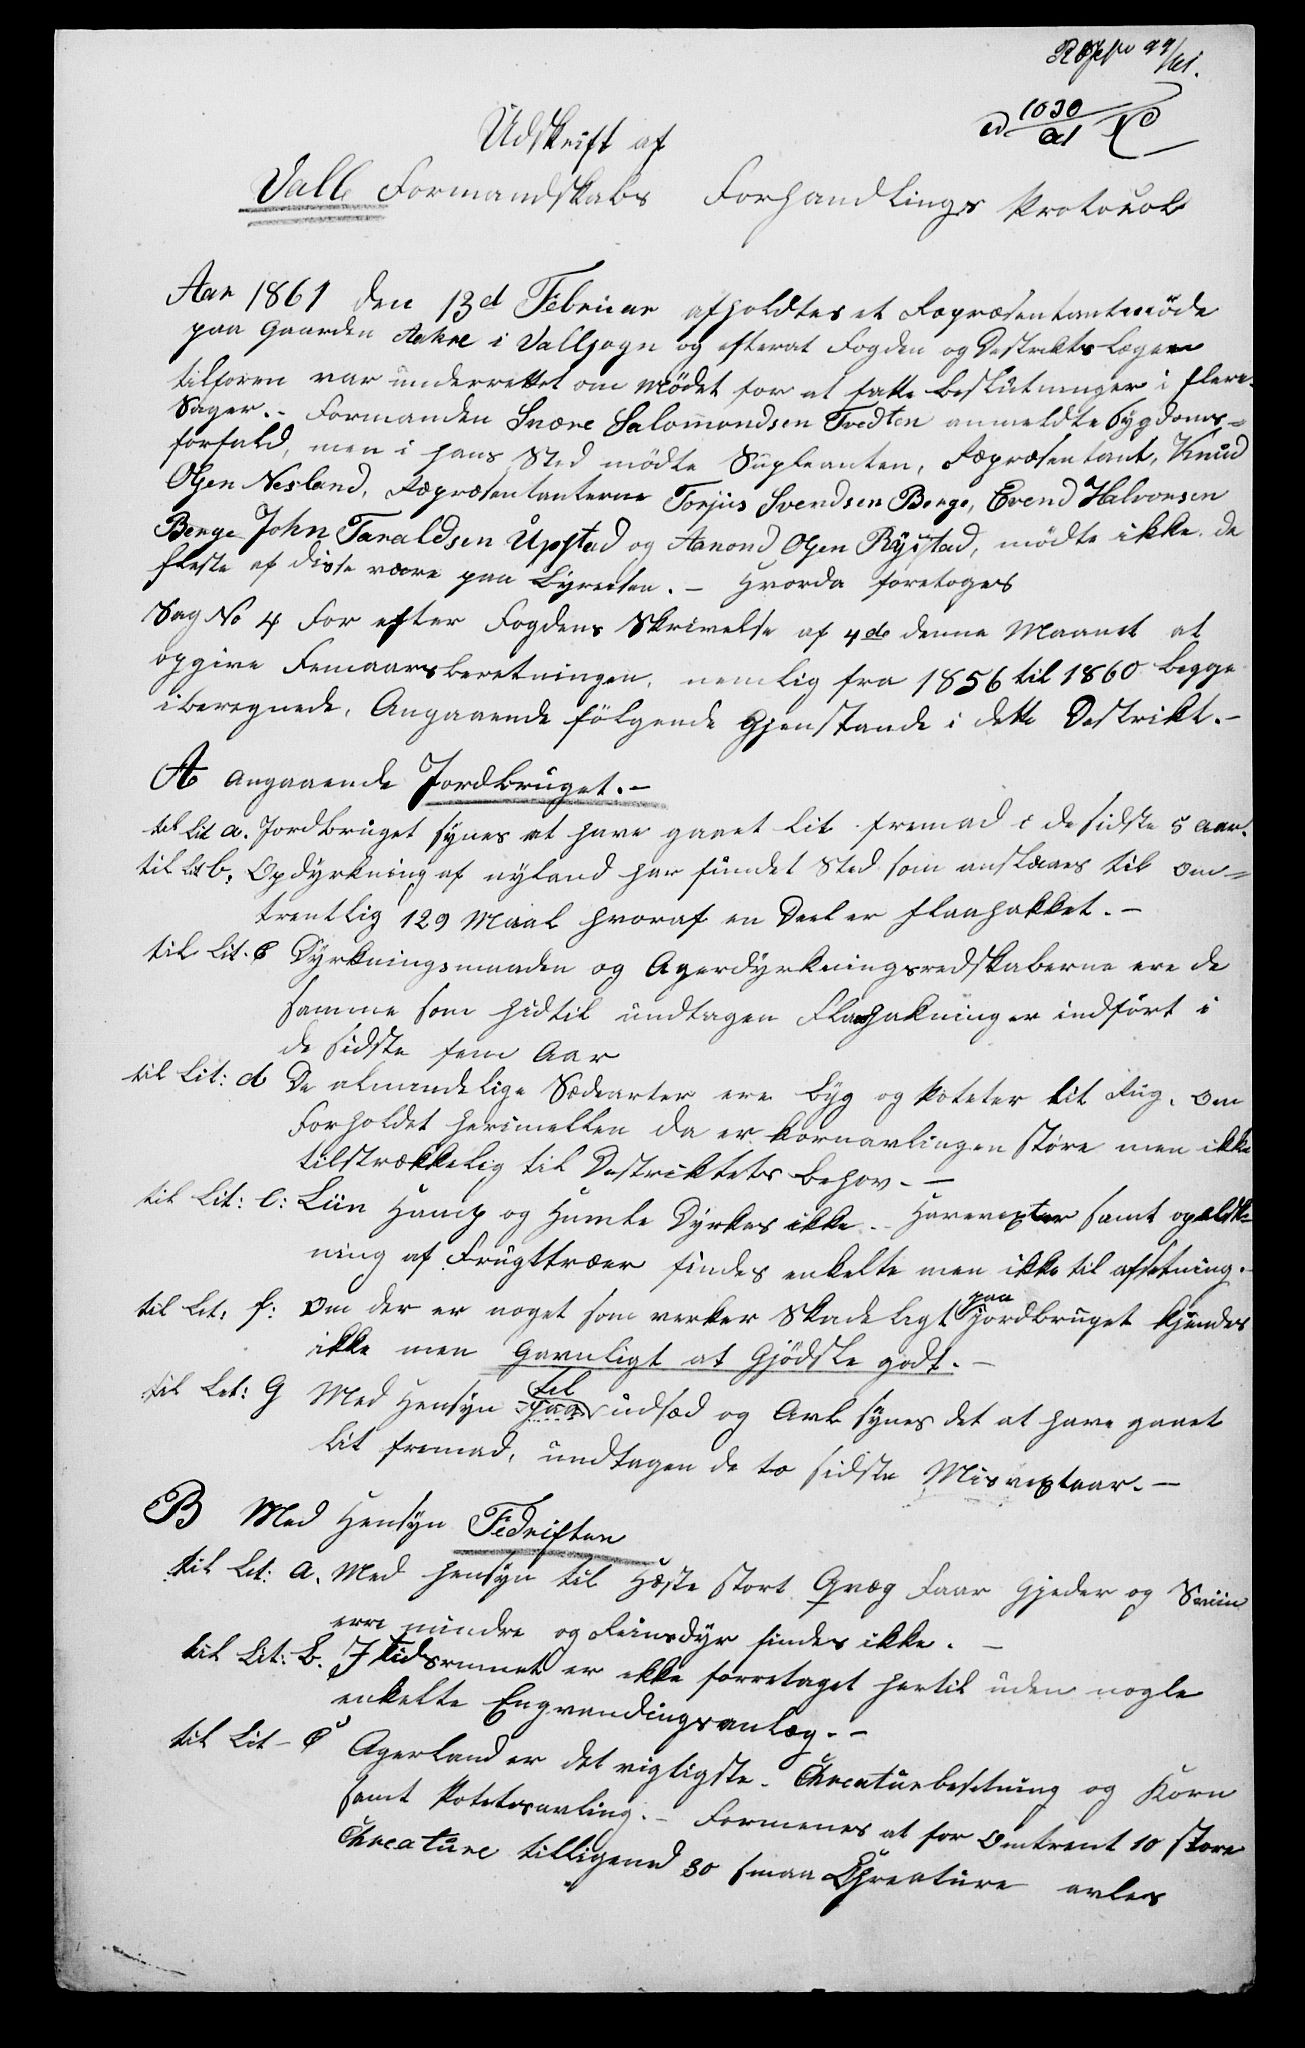 99/61.
1030
61
Udskrift af
Valle Formandskabs Forhandlings Protocol
Aar 1861 den 13d Februar afholdtes et Repræsentantmøde
paa Gaarden Aakre i Vallesogn og efterat Fogden og Destriktslægen
tilforen var underrettet om Mødet for at fatte beslutninger i flere
Sager. - Formanden Svære Salomondsen Tvedten anmeldte Sygdoms=
forfald, men i hans Sted mødte Supleanten, Repræsentant, Knud
Olsen Nesland, Repræsentanterne Torjus Svendsen Berge, Evend Halvorsen
Berge John Taraldsen Upstad og Aanond Olsen Rystad, mødte ikke. de
fleste af disse vare paa Byreiser. - Hvorda foretoges
Sag No 4 For efter Fogdens Skrivelse af 4de denne Maanet at
opgive Femaarsberetningen, nemlig fra 1856 til 1860 begge
iberegnede, Angaaende følgende Gjenstande i dette Destrikt. -
A angaaende Jordbruget. -
til Lit a. Jordbruget synes at have gaaet lit fremad i de sidste 5 aar.
til Lit b. Opdyrkning af nyland har fundet Sted som anslaaes til om=
trentlig 129 Maal hvoraf en Deel er flaahakket. -
til Lit. c Dyrkningsmaaden og Agerdyrkningsredskaberne ere de
samme som hidtil undtagen Flaahakning er indført i
de sidste fem Aar
til Lit: d De almindelige Sædearter ere byg og Poteter lit Rug. Om
Forholdet herimellen da er kornavlingen støre men ikke
tilstrækkelig til Destriktets behov. -
til Lit: e: Liin Hamp og Humle Dyrkes ikke. - Havevexter samt opælsk
ning af Frugttræer findes enkelte men ikke til afsetning. -
til Lit: f: Om der er noget som verker Skadeligt paa Jordbruget kjendes
ikke men gavnligt at Gjødsle godt. -
til Let: G Med Hensyn paa til udsæd og Avl synes det at have gaaet
lit fremad, undtagen de to sidste Misvextaar. -
B Med Hensyn Fedriften
til Let: a. Med hensyn til Heste stort Qvæg Faar Gjeder og Sviin
erre mindre og Reinsdyr findes ikke. -
til Lit: b. I tidsrumet er ikke forretaget hertil uden nogle
enkelte Engvandingsanlæg. -
til Lit - c Agerland er det vigtigste. Chreaturbesetning og Korn
samt Potetesavling. - Formenes at for Omtrent 10 store
Chreature tilligemed 30 smaa Chreature avles